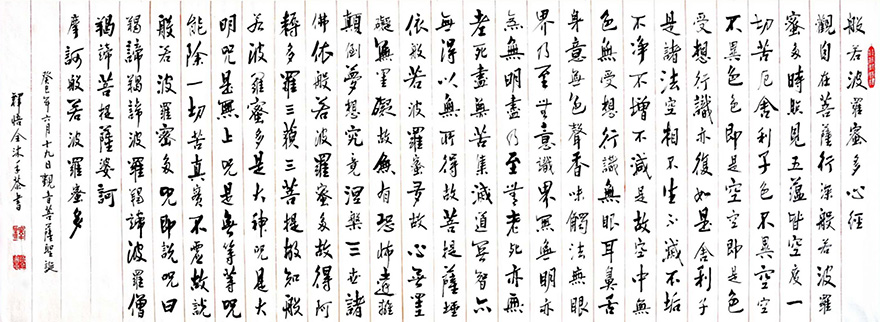 般若波羅蜜多心經
觀自在菩薩行深般若波羅
蜜多時照見五蘊皆空度一
切苦厄舍利子色不異空空
不異色色即是空空即是色
受想行識亦復如是舍利子
是諸法空相不生不滅不垢
不淨不增不減是故空中無
色無受想行識無眼耳鼻舌
身意無色聲香味觸法無眼
界乃至無意識界無無明亦
無無明盡乃至無老死亦無
老死盡無苦集滅道無智亦
無得以無所得故菩提薩埵
依般若波羅蜜多故心無罣
礙無罣礙故無有恐怖遠離
顛倒夢想究竟涅槃三世諸
佛依般若波羅蜜多故得阿
耨多羅三藐三菩提故知般
若波羅蜜多是大神咒是大
明咒是無上咒是無等等咒
能除一切苦真實不虛故說
般若波羅蜜多咒即說咒曰
羯諦羯諦波羅羯諦波羅僧
羯諦菩提薩婆訶
摩訶般若波羅蜜多
癸巳年六月十九日觀音菩薩聖誕
釋悟全沐手恭書